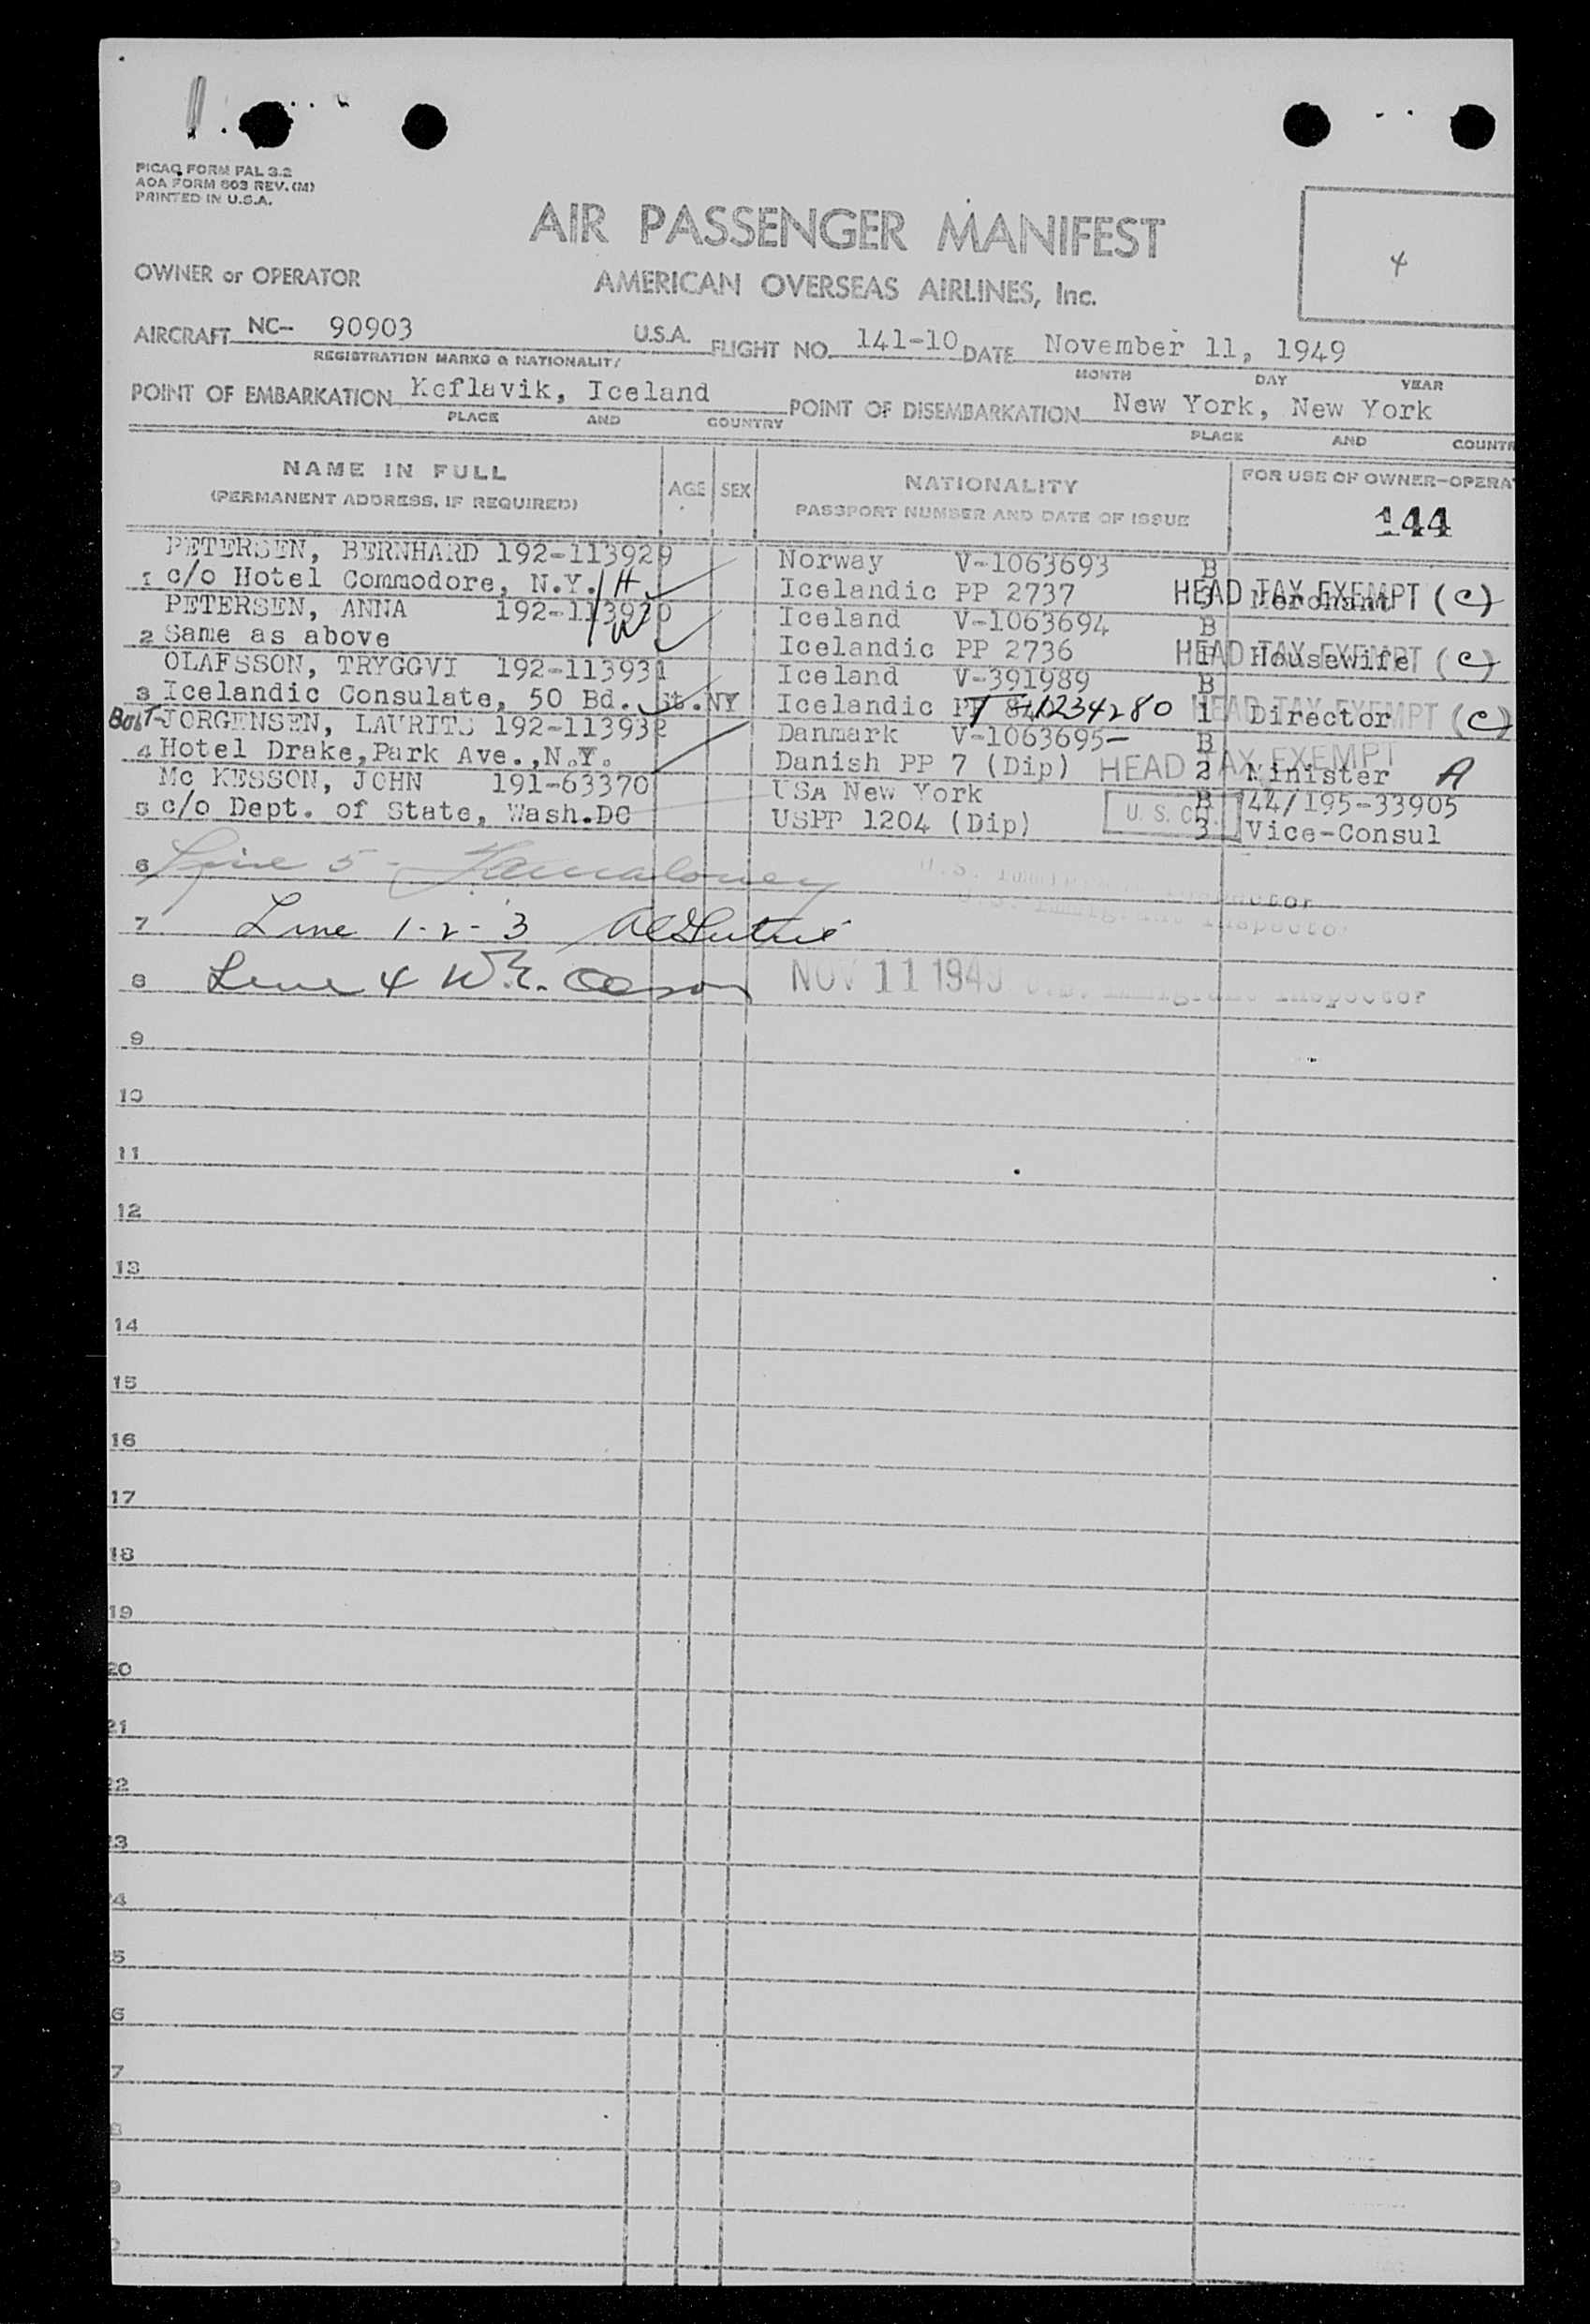 PICAO FORM PAL 3.2
AOA FORM 603 REV. (M)
PRINTED IN U.S.A.
AIR PASSENGER MANIFEST
4
OWNER or OPERATOR
AMERICAN OVERSEAS AIRLINES, Inc.
AIRCRAFT NC- 90903 U.S.A. FLIGHT NO. 141-10 DATE November 11, 1949
REGISTRATION MARKS & NATIONALITY MONTH DAY YEAR
POINT OF EMBARKATION Keflavik, Iceland POINT OF DISEMBARKATION New York, New York
PLACE AND COUNTRY PLACE AND COUNTR
NAME IN FULL AGE SEX NATIONALITY FOR USE OF OWNER-OPERA
(PERMANENT ADDRESS, IF REQUIRED) PASSPORT NUMBER AND DATE OF ISSUE
144
PETERSEN, BERNHARD 192-113929 Norway V-1063693 B
1 c/o Hotel Commodore, N.Y. H Icelandic PP 2737 3 Merchant HEAD TAX EXEMPT (C)
PETERSEN, ANNA 192-113930 Iceland V-1063694 B
2 Same as above W Icelandic PP 2736 1 Housewife HEAD TAX EXEMPT (C)
OLAFSSON, TRYGGVI 192-113931 Iceland V-391989 B
3 Icelandic Consulate, 50 Bd. St. NY Icelandic T-1234280 1 Director HEAD TAX EXEMPT (C)
JORGENSEN, LAURITS 192-113932 Danmark V-1063695- B
4 Hotel Drake, Park Ave., N.Y. Danish PP 7 (Dip) HEAD TAX EXEMPT 2 Minister A
Mc KESSON, JOHN 191-63370 USA New York B 144/195-33905
5 c/o Dept. of State, Wash.DC USPP 1204 (Dip) U. S. C. 3 Vice-Consul
6 Line 5 -
7 Line 1-2-3 Inspector
8 Line 4 W.E. NOV 11 1949 U.S. Immigrant Inspector
9
10
11
12
13
14
15
16
17
18
19
20
21
22
23
4
5
6
7
8
9